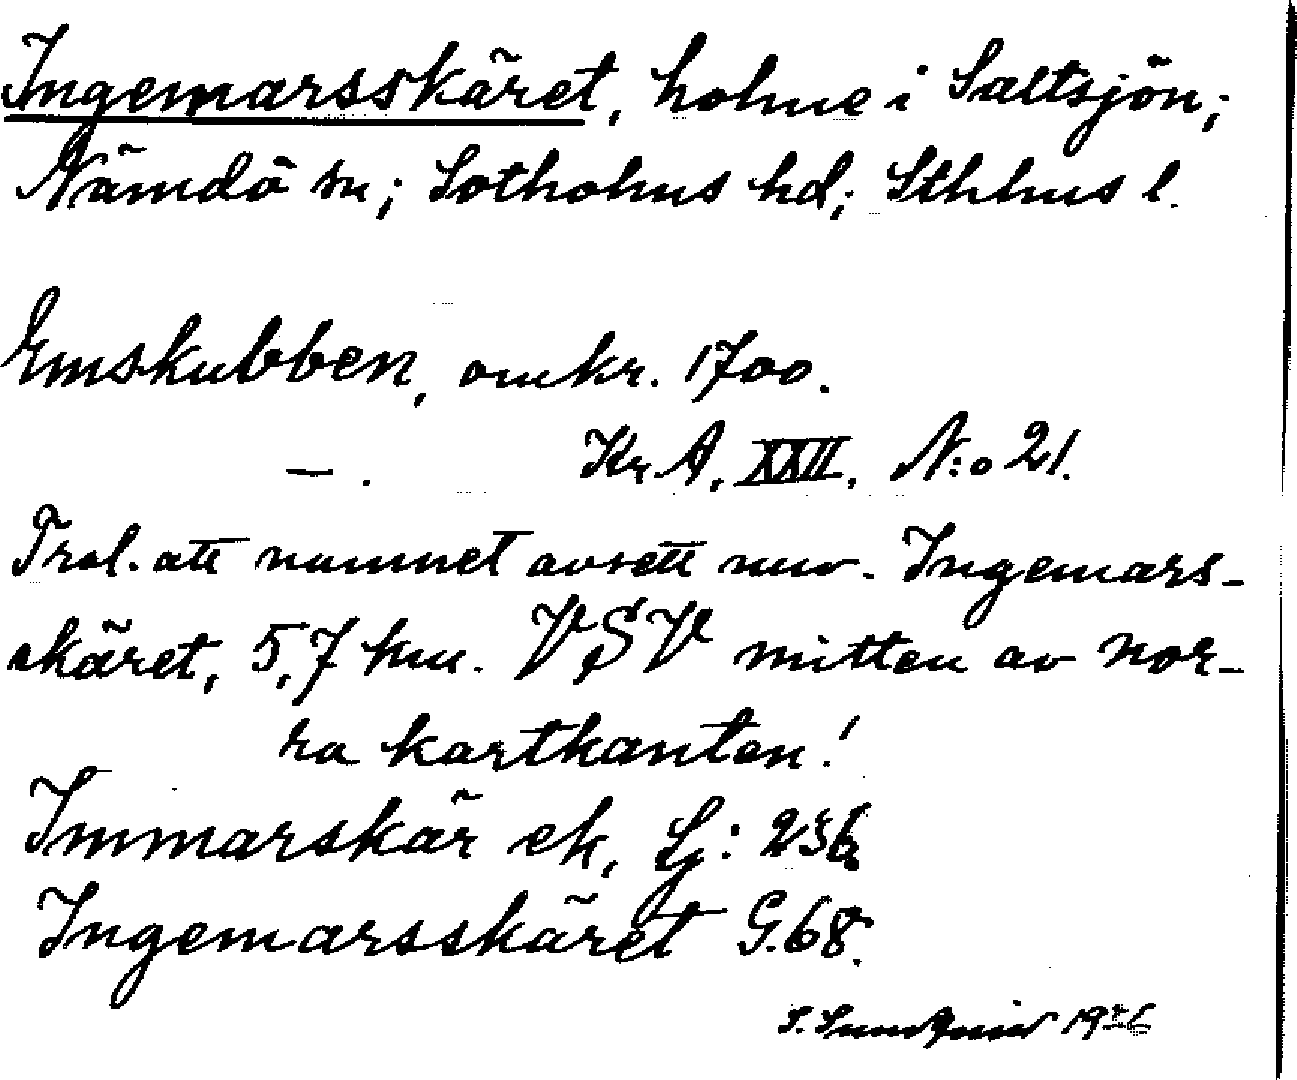 Ingemarsskäret, holme i Saltsjön;
Nämdö sn; Sotholms hd; Sthlms l.
Emskubben, omkr. 1700.
—. Kr. A. XXII. N:o 21.
Trol. att namnet avsett nuv. Ingemars-
skäret, 5,7 km. VSV mitten av nor-
ra kartkanten!
Immarskär ek, Lj: 236
Ingemarsskäret G. 68.
S. Sundquist 1926